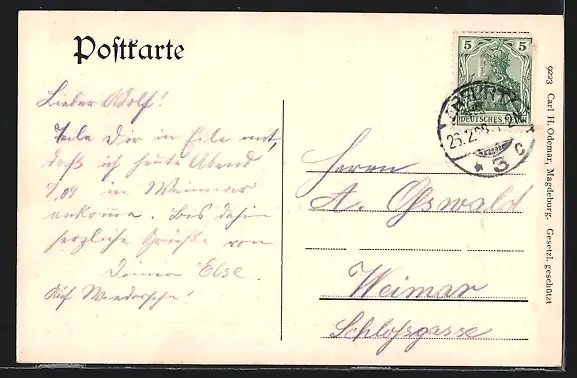 Postkarte
Lieber Adolf!
Teile Dir in Eile mit,
daß ich heute Abend
9,09 in Weimar
ankomme. Bis dahin
herzliche Grüße von
Deiner Else.
Auf Wiedersehn!
5 5
DEUTSCHES REICH
ERFURT
26.2.
* 3 c
Herrn
A. Oßwald
Weimar
Schloßgasse
9223 Carl H. Odemar, Magdeburg. Gesetzl. geschützt